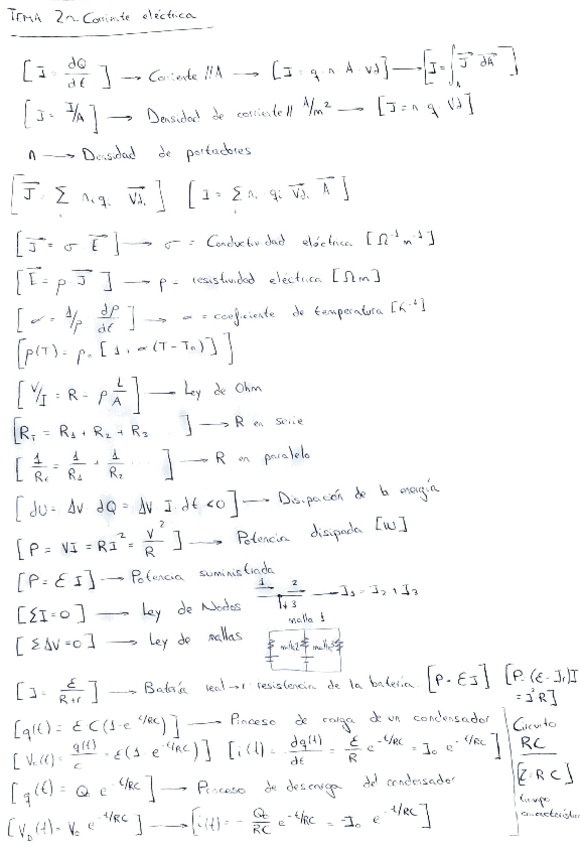 TEMA 2n. Corriente eléctrica
[I = dQ/dt] → Corriente // A → [I = q · n · A · vd] → [I = ∫A J⃗ dA⃗]
[J = I/A] → Densidad de corriente // A/m² → [J = n q vd]
n → Densidad de portadores
[J⃗ = Σi ni qi v⃗di] [I = Σi ni qi v⃗di A⃗]
[J⃗ = σ E⃗] → σ = Conductividad eléctrica [Ω⁻¹ m⁻¹]
[E⃗ = ρ J⃗] → ρ = resistividad eléctrica [Ωm]
[α = 1/ρ dρ/dt] → α = coeficiente de temperatura [K⁻¹]
[ρ(T) = ρ₀ [1 + α(T - T₀)]]
[V/I = R = ρ L/A] → Ley de Ohm
[RT = R1 + R2 + R3 ] → R en serie
[1/Rt = 1/R1 + 1/R2 ... ] → R en paralelo
[dU = ΔV dQ = ΔV I · dt < 0] → Disipación de la energía
[P = VI = RI² = V²/R] → Potencia disipada [W]
[P = Ɛ I] → Potencia suministrada
[ΣI = 0] → Ley de Nodos 1 2 3 → I1 = I2 + I3
[ΣΔV = 0] → Ley de mallas malla 1 malla 2 malla 3
[I = Ɛ/(R+r)] → Batería real → r: resistencia de la bateria. [P = ƐI] [P = (Ɛ - Ir)I = I²R]
[q(t) = Ɛ C(1 - e^-t/RC)] → Proceso de carga de un condensador
[Vc(t) = q(t)/C = Ɛ(1 - e^-t/RC)] [i(t) = dq(t)/dt = Ɛ/R e^-t/RC = I₀ e^-t/RC]
[q(t) = Q₀ e^-t/RC] → Proceso de descarga del condensador
[VD(t) = V₀ e^-t/RC] → [i(t) = - Q₀/RC e^-t/RC = I₀ e^-t/RC]
Circuito
RC
[τ = RC]
tiempo
característico